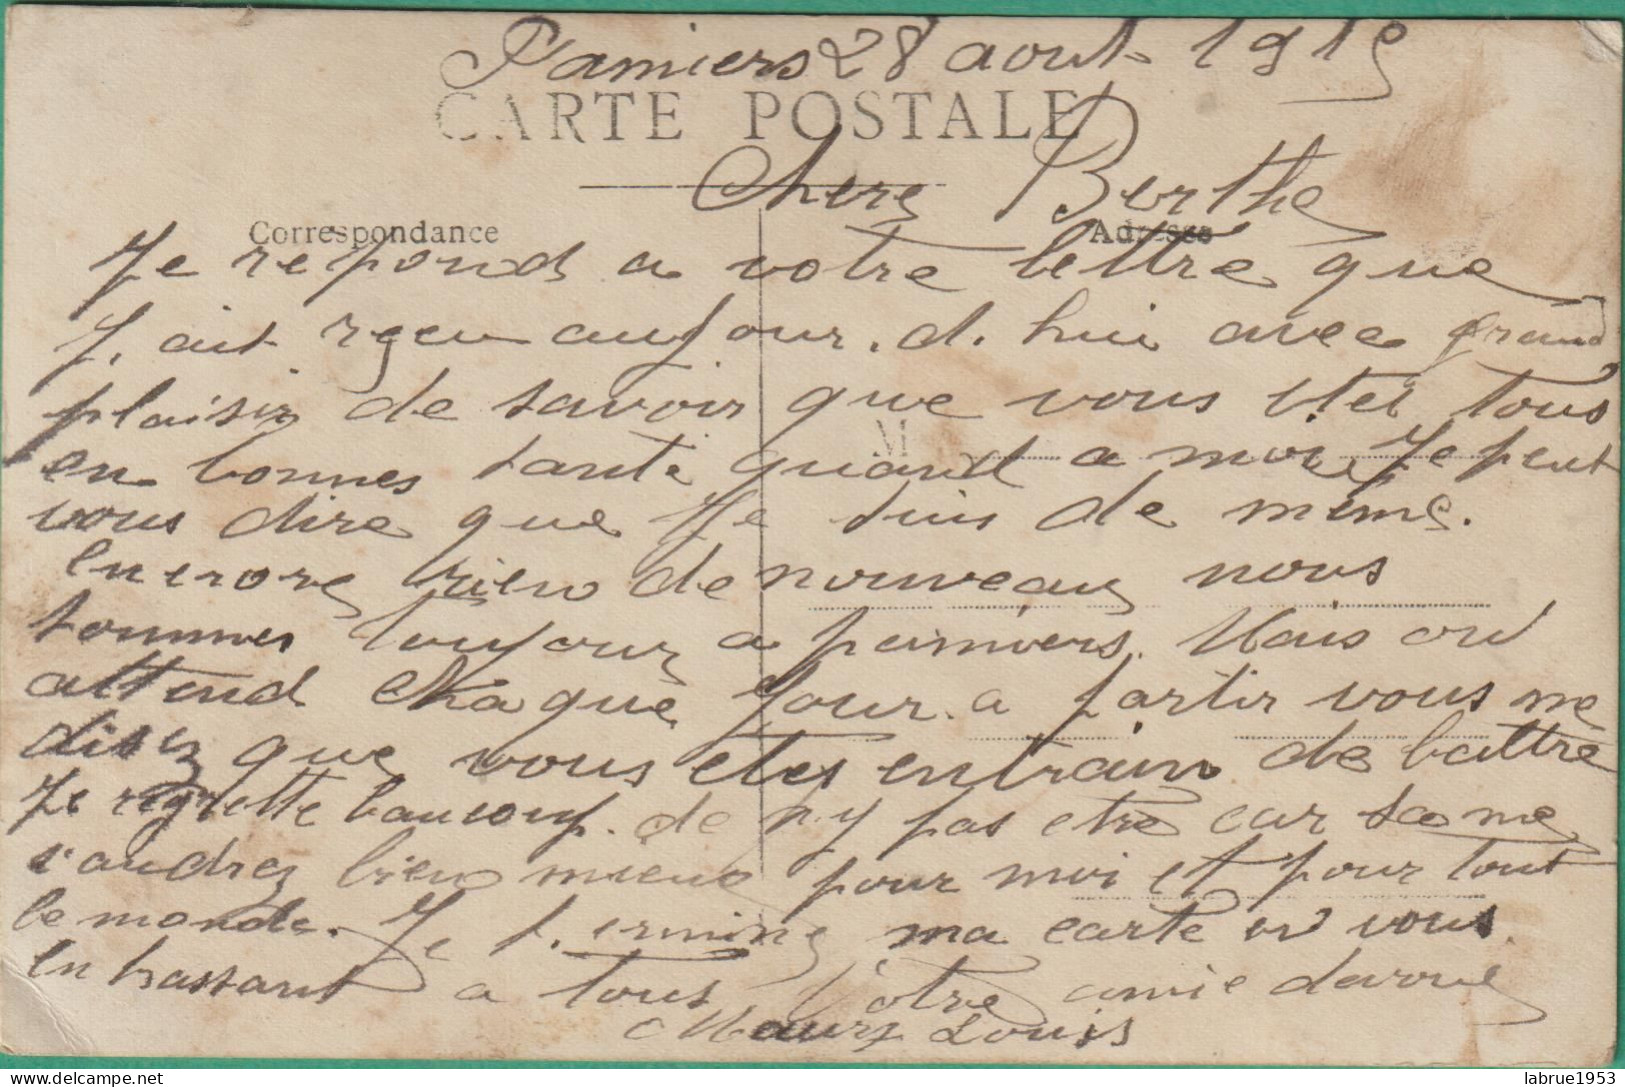 Pamiers 28 aout 1915
CARTE POSTALE
Chere Berthe
Correspondance
Adresse
Je repond a votre lettre que
J. ait reçeu aujour. d. hui avec grand
plaisir de savoir que vous etes tous
M
en bonnes santé quand a moi Je peut
vous dire que Je suis de même.
encrore rien de nouveau nous
sommes toujour a pamiers. Mais on
attend chaque Jour a partir vous me
disez que vous etes entrain de battre
Je regrette baucoup. de n.y pas etre car sa me
vaudrez bien mieux pour moi et pour tout
le monde. Je t.ermine ma carte en vous
enbrassant a tous Votre amie
Maury Louis
labrue1953